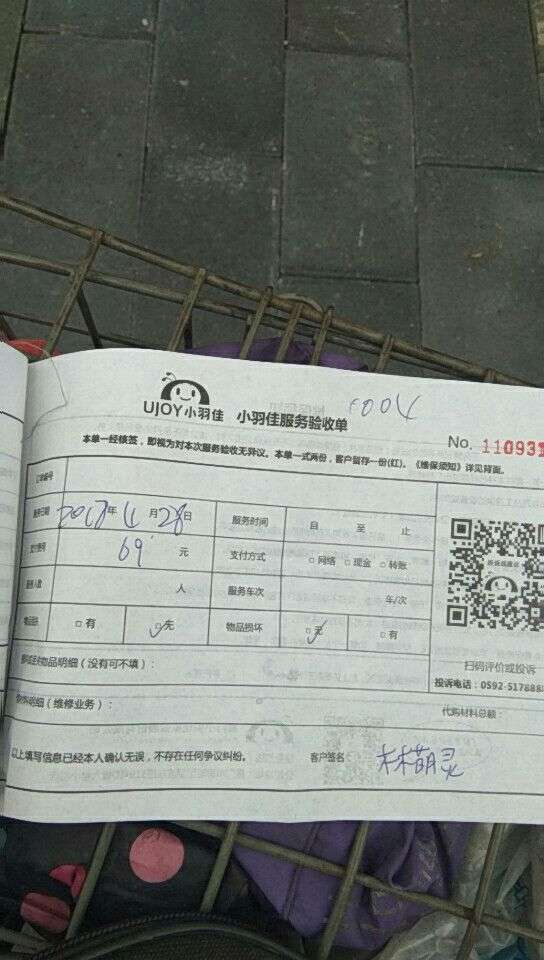 UJOY小羽佳 小羽佳服务验收单 F004
No. 110931
本单一经核签，即视为对本次服务验收无异议。本单一式两份，客户留存一份(红)。《维保须知》详见背面。
订单编号
服务日期 2018年 4月28日 服务时间 自 至 止
支付费用 69 元 支付方式 □网络 □现金 □转账
服务人数 人 服务车次 车/次
□有 □无 物品损坏 □无 □有
扫码评价或投诉
物品明细（没有可不填）：
投诉电话：0592-517888
明细（维修业务）：
代购材料总额：
以上填写信息已经本人确认无误，不存在任何争议纠纷。 客户签名： 林萌灵